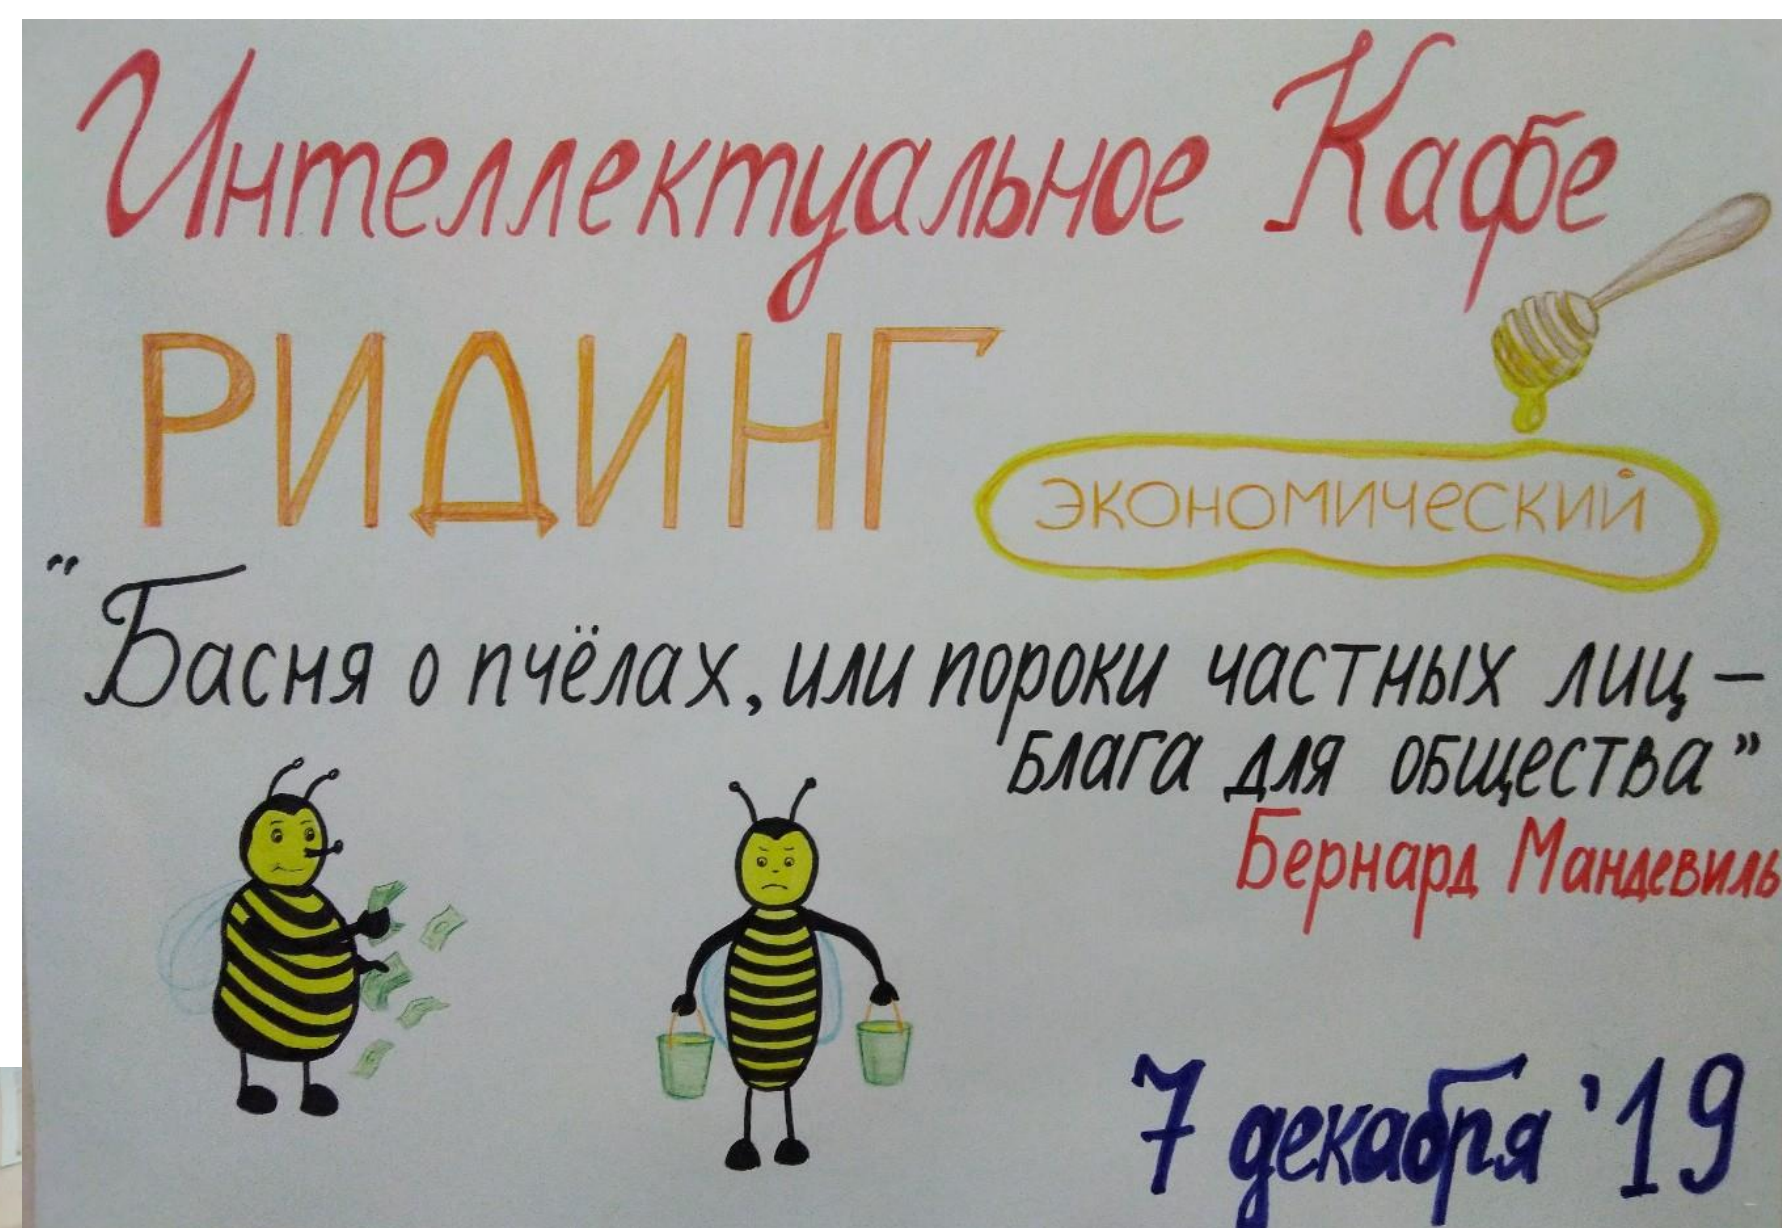 Интеллектуальное Кафе
РИДИНГ
ЭКОНОМИЧЕСКИЙ
"Басня о пчёлах, или пороки частных лиц –
блага для общества"
Бернард Мандевиль
7 декабря '19